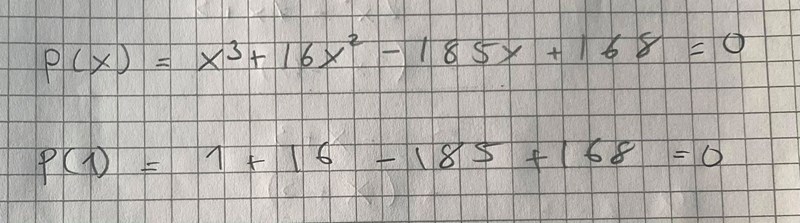 p(x) = x³ + 16x² - 185x + 168 = 0
p(1) = 1 + 16 - 185 + 168 = 0